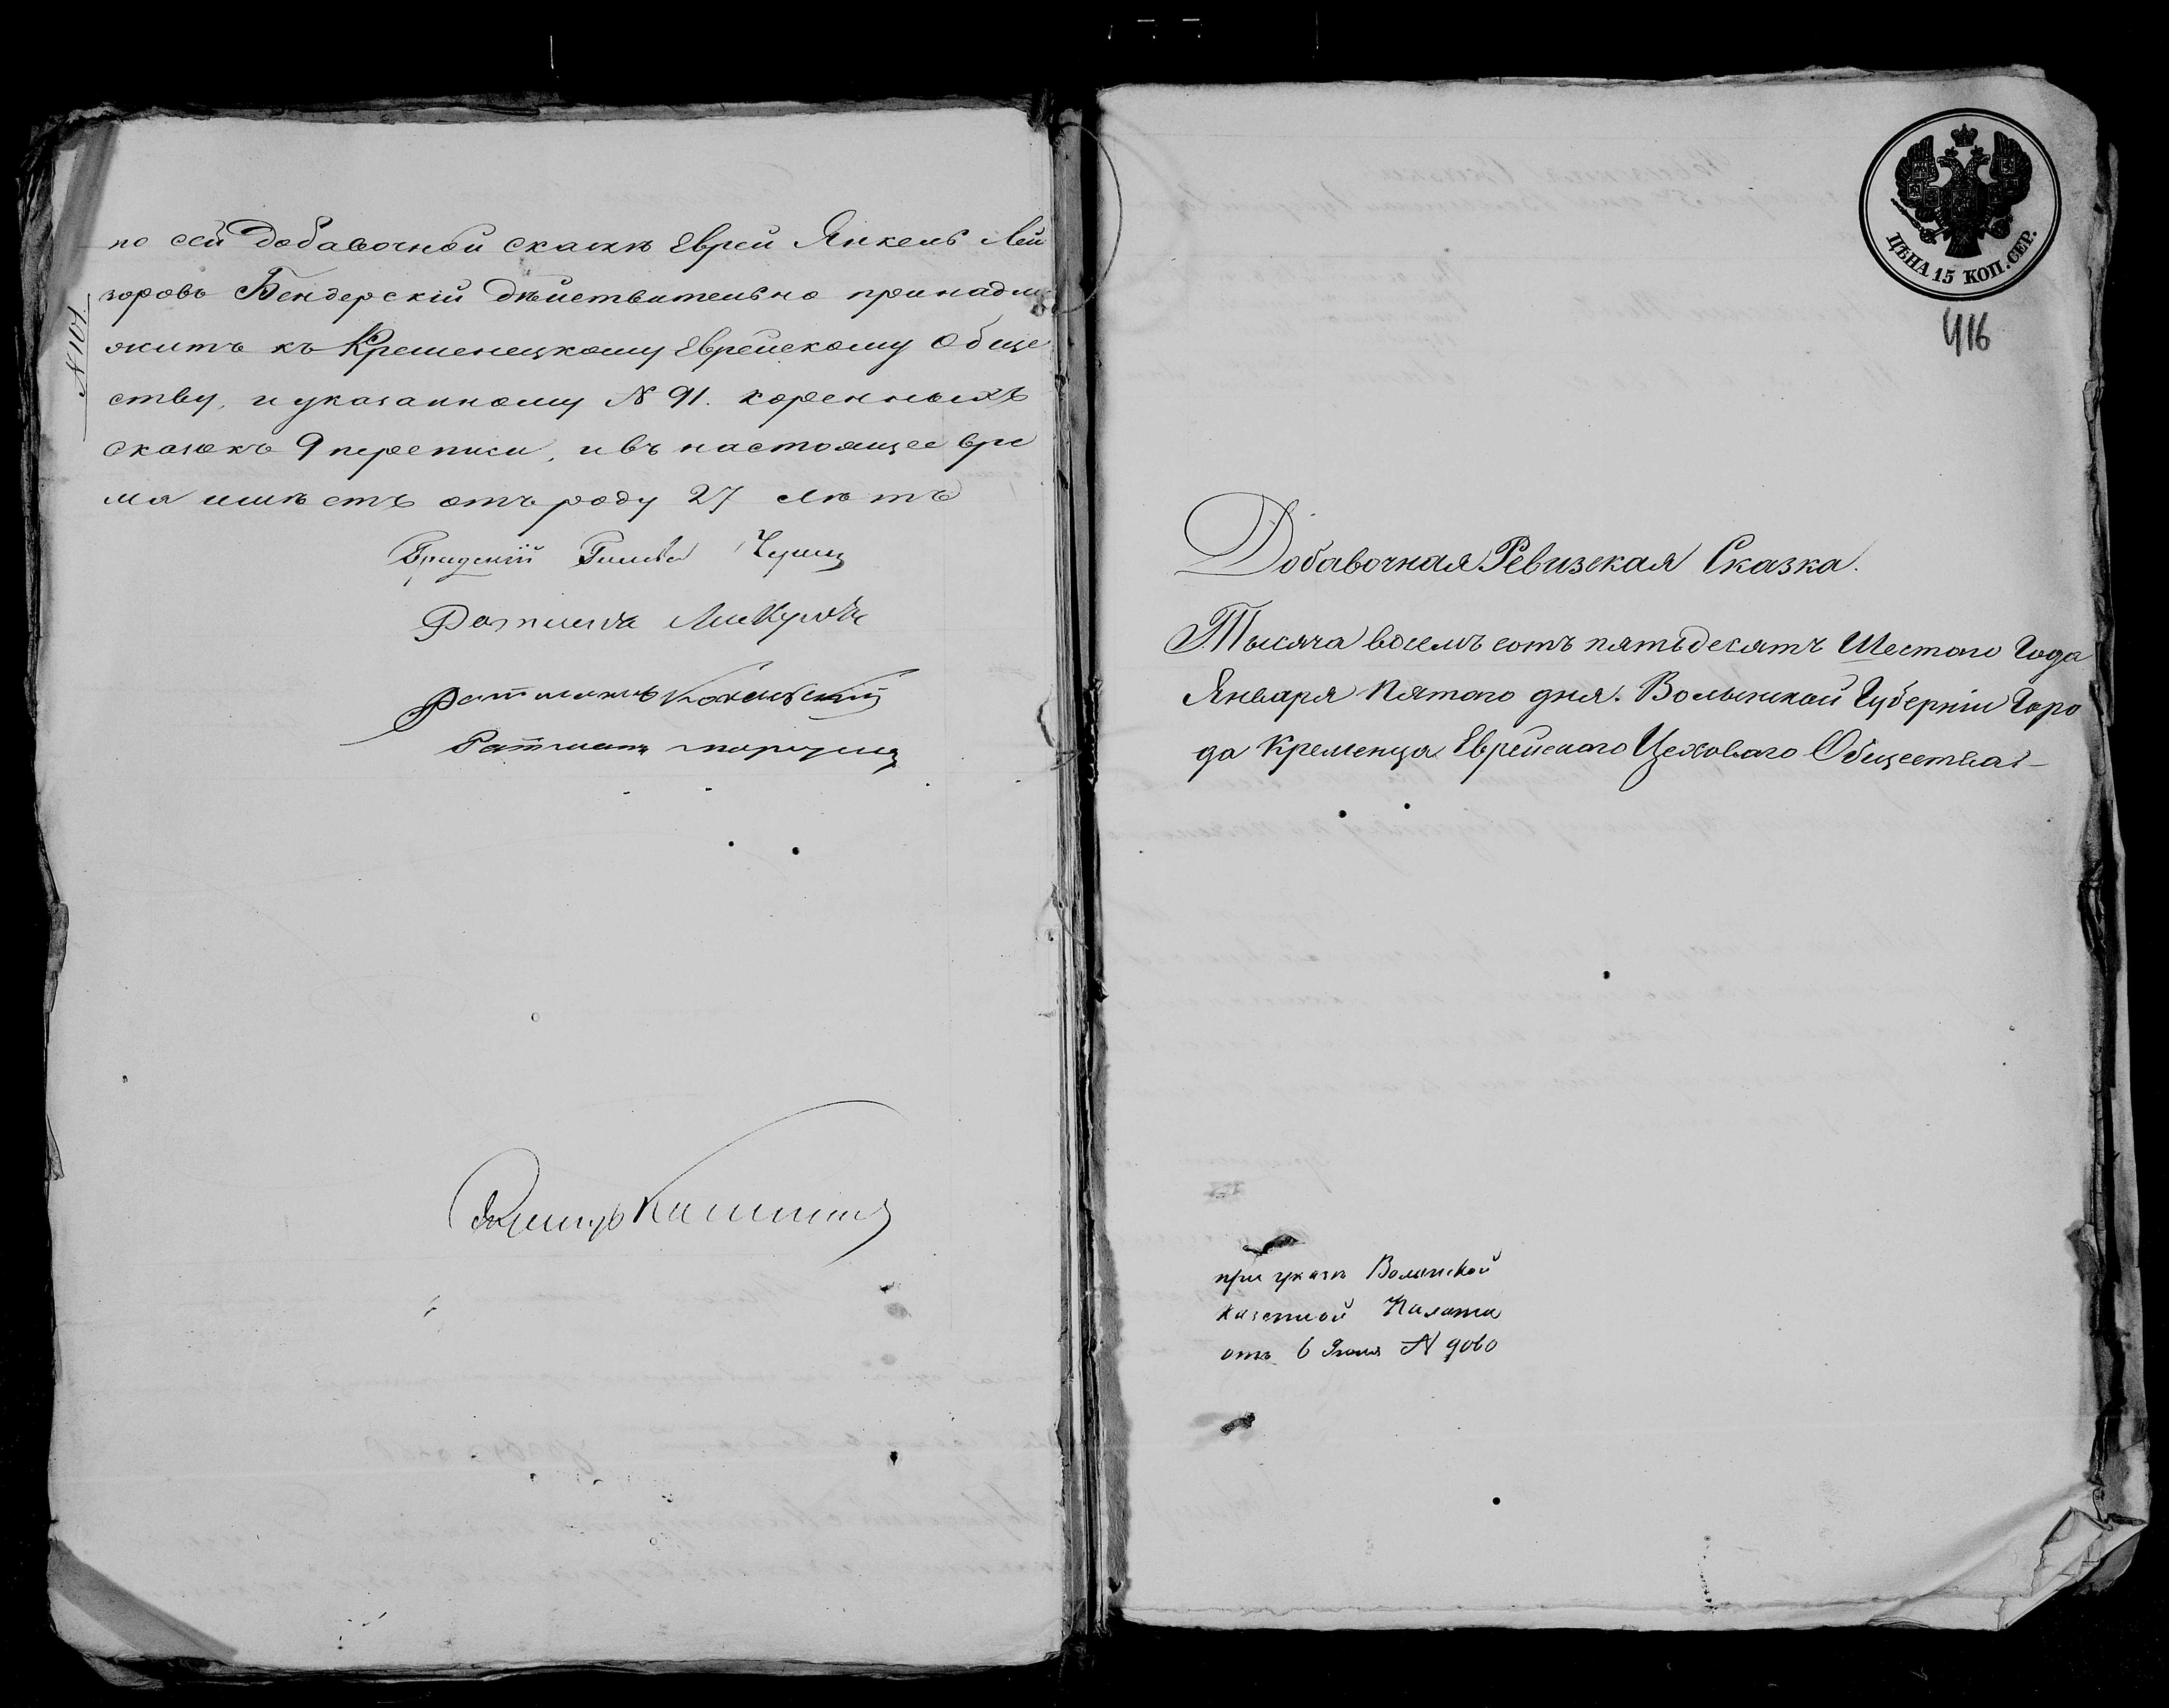 № 101.
по сей добавочной сказкѣ Еврей Янкель Лей
зоровъ Бендерскій дѣйствительно принадле
житъ къ Кременецкому Еврейскому Обще
ству, и указанному № 91. коренныхъ
сказокъ 9 переписи, и въ настоящее вре
мя имѣетъ отъ роду 27 лѣтъ
Градскій Глава
Ратманъ
Ратманъ
Ратманъ
ЦѢНА 15 КОП. СЕР.
416
Добавочная Ревизская Сказка.
Тысяча восемь сотъ пятьдесятъ Шестого Года
Января Пятого дня. Волынской Губерніи Горо
да Кременца Еврейскаго Цеховаго Общества
при указѣ Волынской
Казенной Палаты
отъ 6 Іюля № 9060